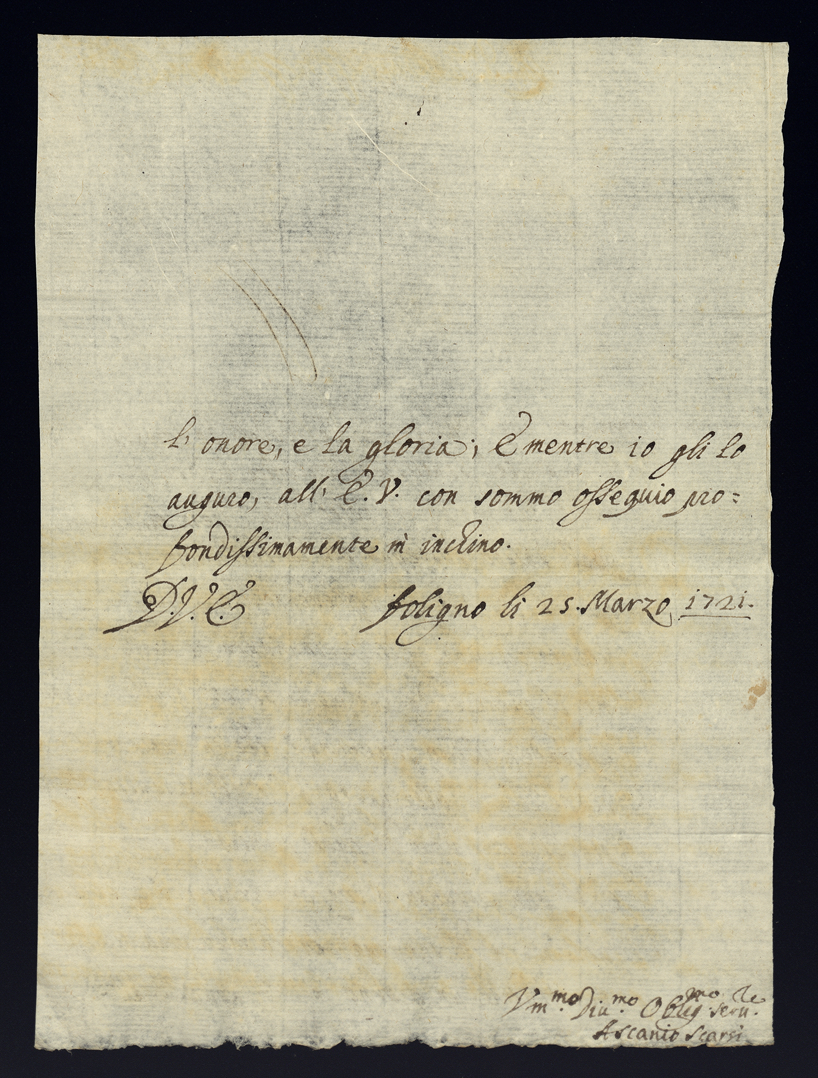 l' onore, e la gloria; E mentre io gli lo
auguro, all' E. V. con sommo ossequio pro=
fondissimamente m' inchino.
D. V. E. Foligno li 25. Marzo 1721.
Vm.mo Diu.mo Obleg.mo seru.le
Ascanio Scarsi